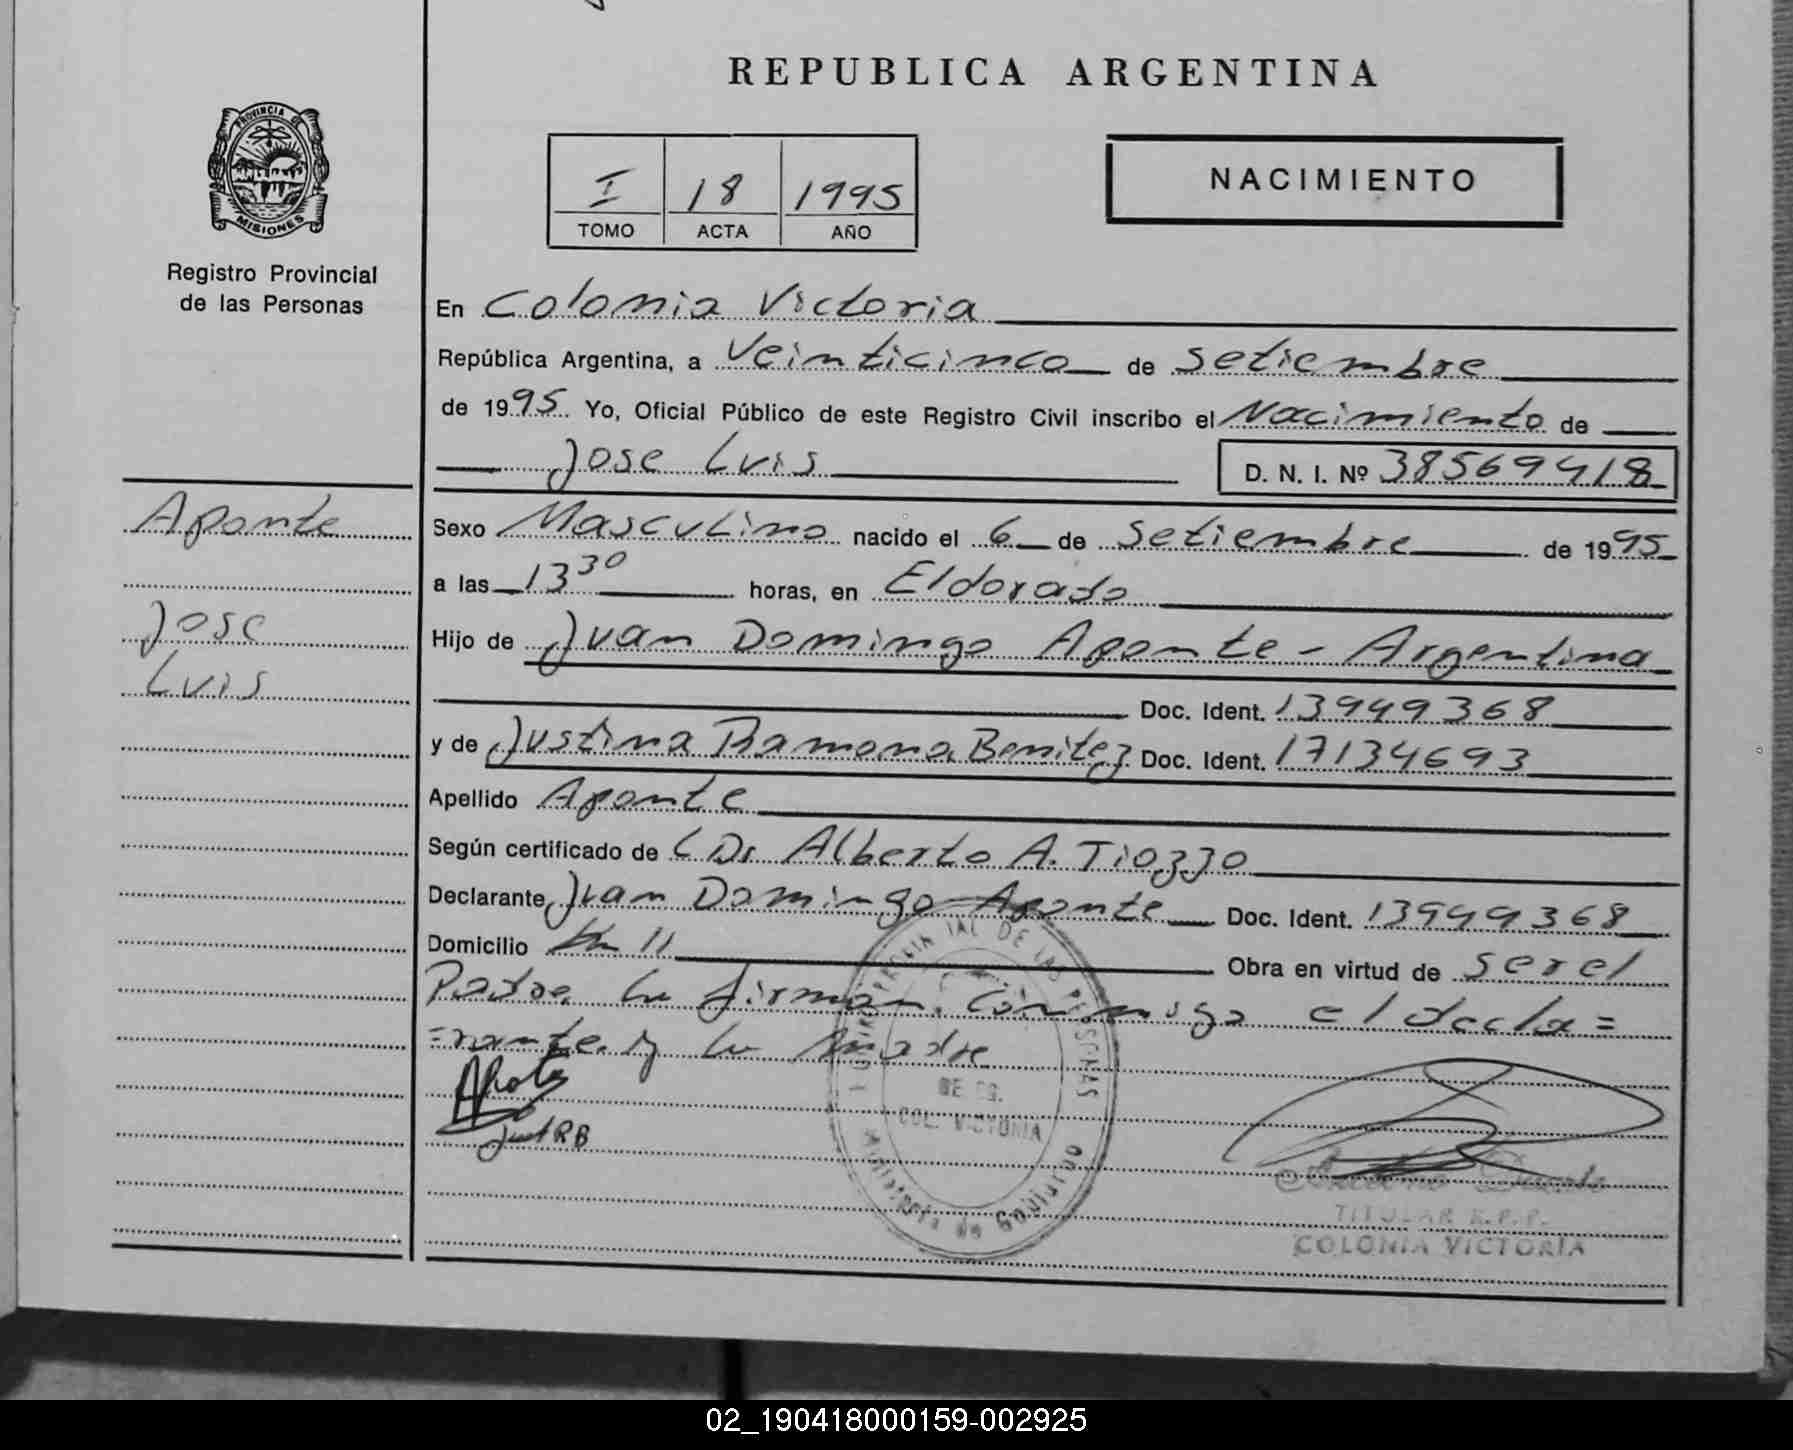 REPUBLICA ARGENTINA
PROVINCIA DE
MISIONES
Registro Provincial
de las Personas
I 18 1995
TOMO ACTA AÑO
NACIMIENTO
En Colonia Victoria
República Argentina, a Veinticinco de Setiembre
de 1995 Yo, Oficial Público de este Registro Civil inscribo el Nacimiento de
Jose Luis D. N. I. Nº 38569418
Aponte
Jose
Luis
Sexo Masculino nacido el 6 de Setiembre de 1995
a las 13 30 horas, en Eldorado
Hijo de Juan Domingo Aponte - Argentina
Doc. Ident. 13949368
y de Justina Ramona Benitez Doc. Ident. 17134693
Apellido Aponte
Según certificado de Dr Alberto A. Tiozzo
Declarante Juan Domingo Aponte Doc. Ident. 13949368
Domicilio Km 11 Obra en virtud de ser el
Padre. firman. Conmigo el decla=
=rante. y la Madre
Just RB
DE LAS PERSONAS
COL. VICTORIA
Ministerio de Gobierno
TITULAR R.P.P.
COLONIA VICTORIA
02_190418000159-002925